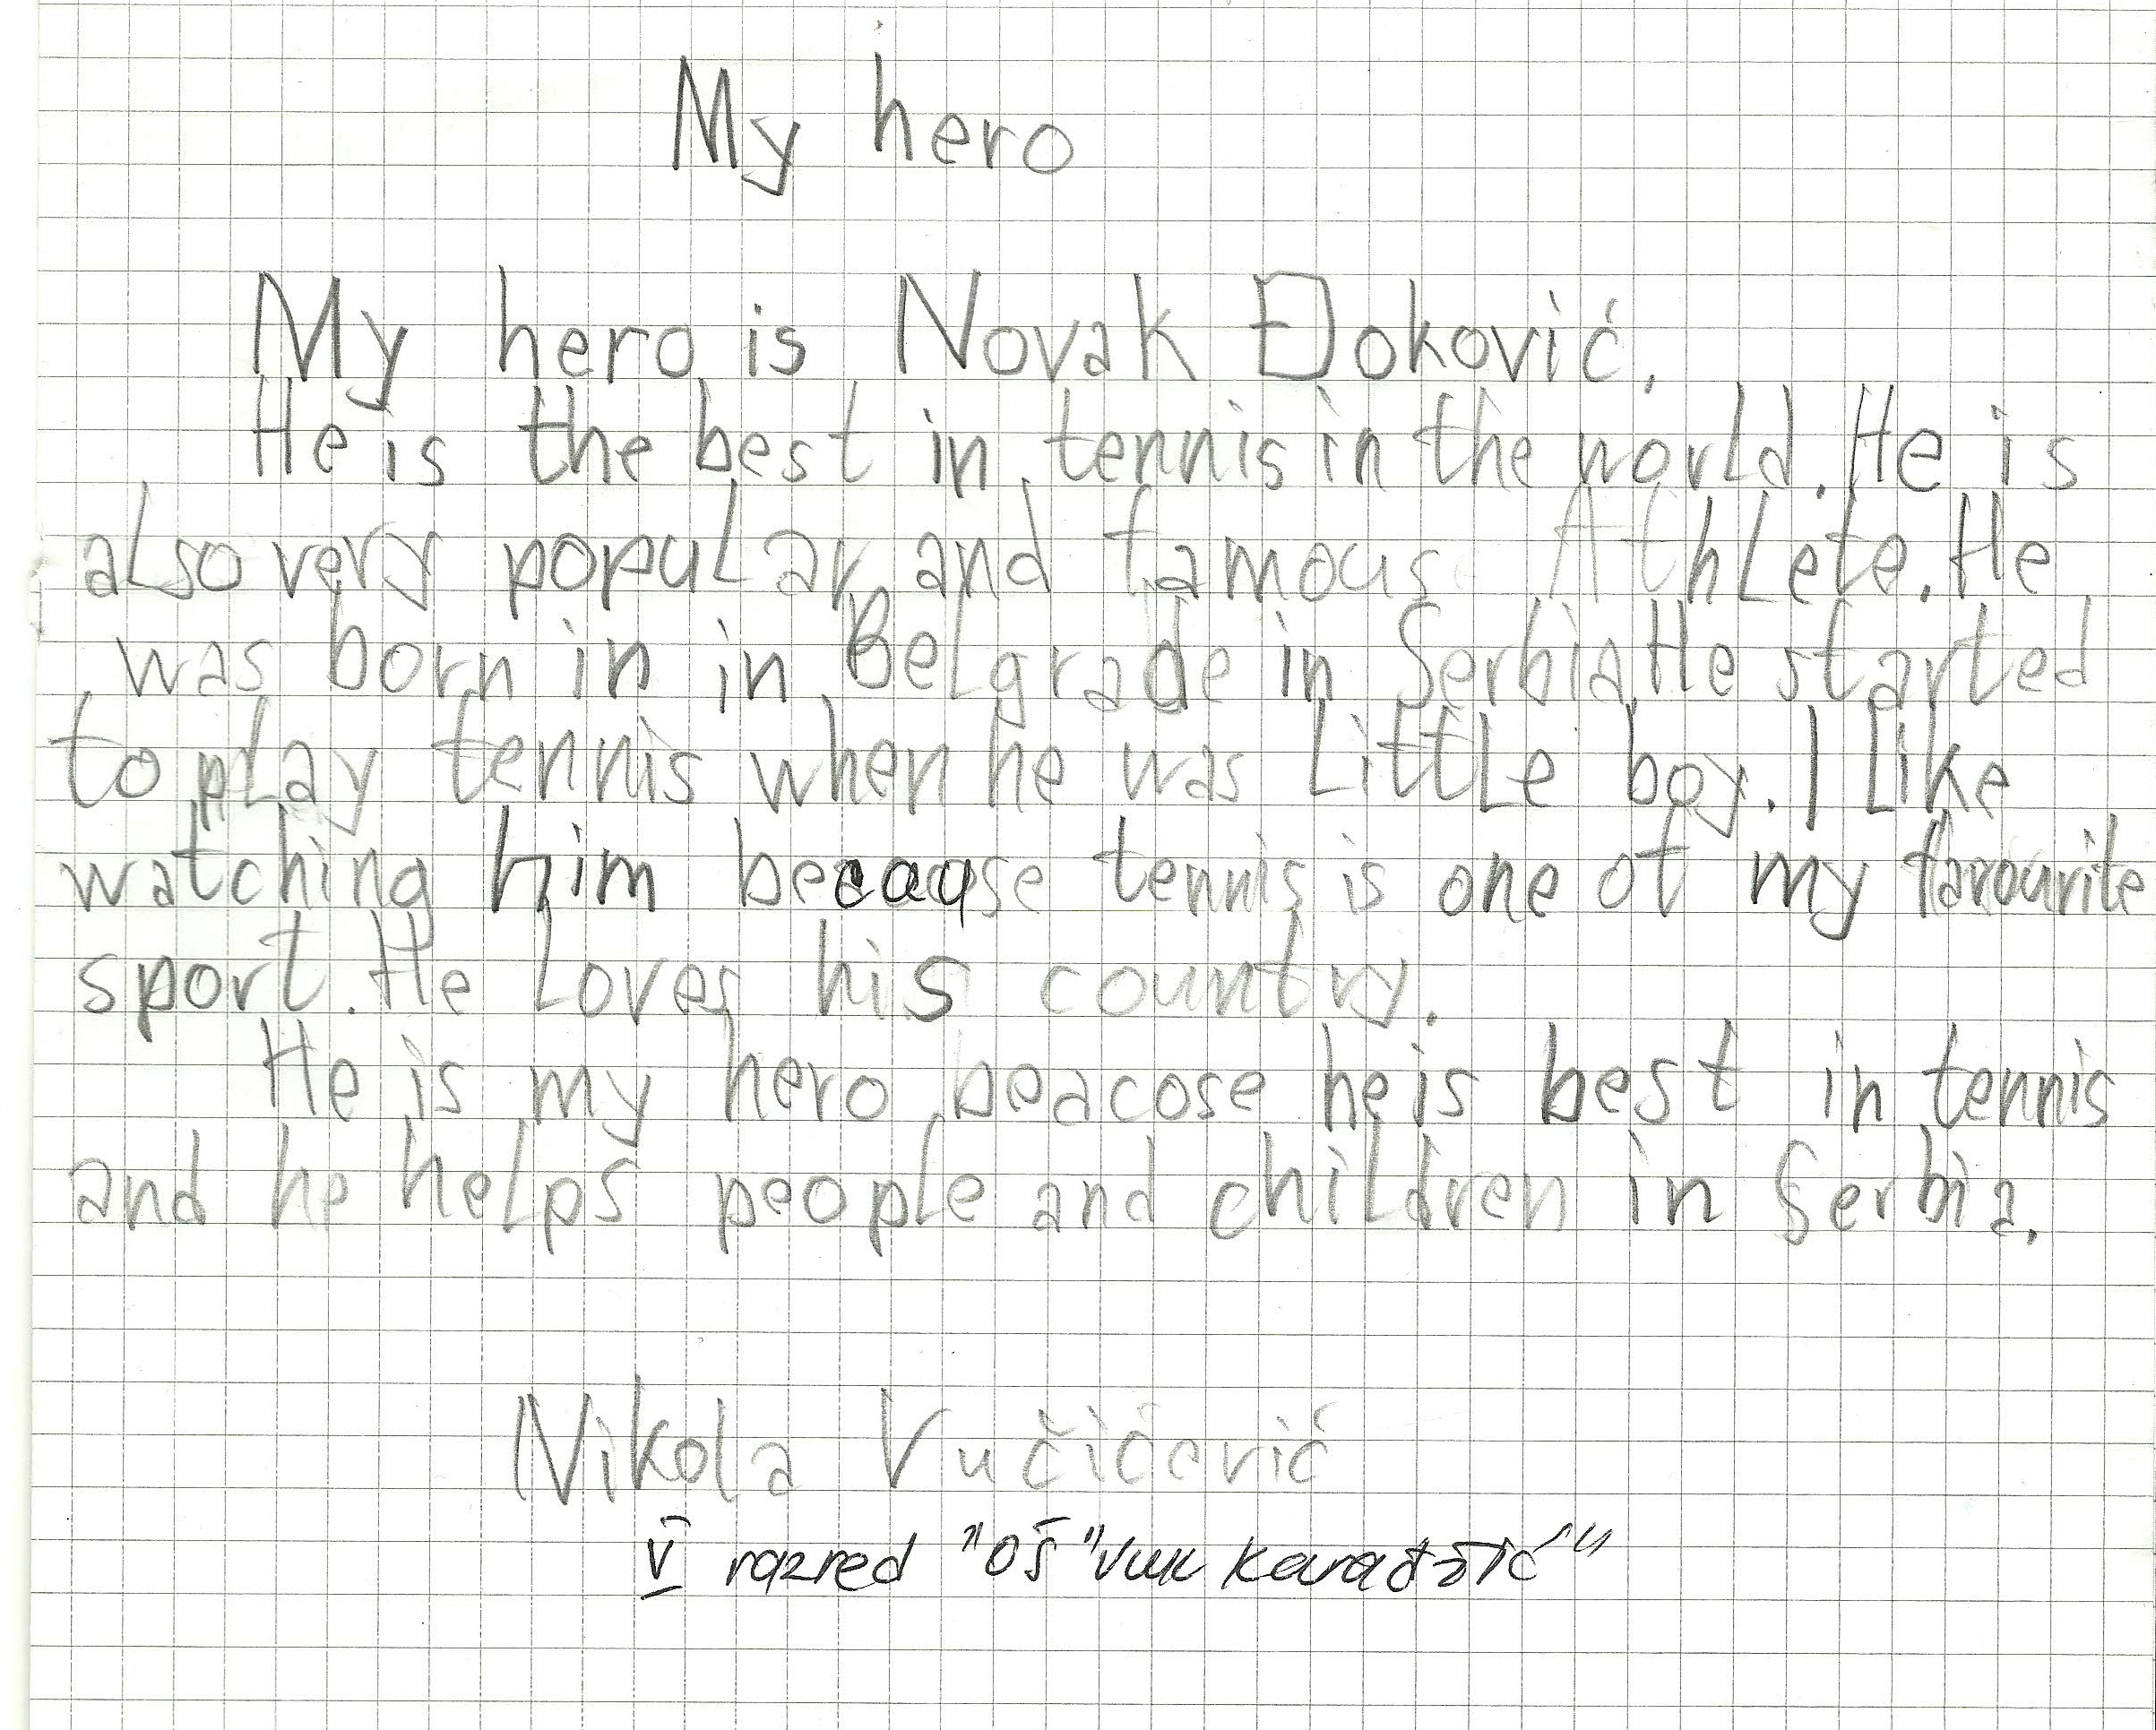 My hero
My hero is Novak Đoković.
He is the best in tennis in the world. He is
also very popular and famous Athlete. He
was born in in Belgrade in Serbia He started
to play tennis when he was little boy. I like
watching him because tennis is one of my favourite
sport. He loves his country.
He is my hero beacose he is best in tennis
and he helps people and children in Serbia.
Nikola Vučićević
V razred "OŠ "Vuk Karadžić""